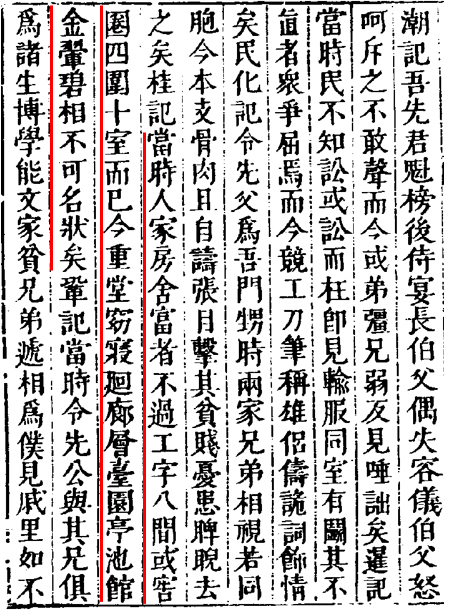 潮記吾先君魁榜後侍宴長伯父偶失容儀伯父怒
呵斥之不敢聲而今或弟彊兄弱反見唾詘矣暹記
當時民不知訟或訟而枉卽見輸服同室有鬭其不
直者衆爭屈焉而今競工刀筆稱雄侶儔詭詞飾情
矣民化記令先父爲吾門甥時兩家兄弟相視若同
胞今本支骨肉且自譸張目擊其貧賤憂患睥睨去
之矣桂記當時人家房舍富者不過工字八間或窖
圈四圍十室而已今重堂窈寢廻廊層臺園亭池館
金翬碧相不可名狀矣鞏記當時令先公與其兄俱
爲諸生博學能文家貧兄弟遞相爲僕見戚里如不